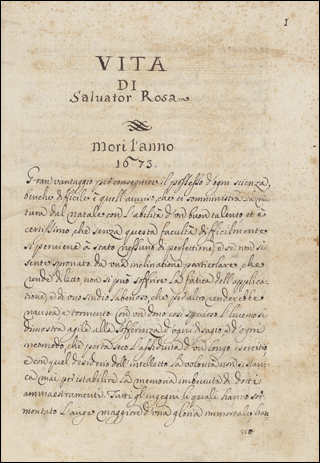 1
VITA
DI
Salvator Rosa
Morì l'anno
1673.
Gran vantaggio per conseguire il possesso d'ogni scienza,
benche difficile è quell'avviso, che ci somministra la na
tura dal natale con l'abilità d'un buon talento, et è
certissimo che senza questa facultà difficilmente
si perviene a stato nessuno di perfettione, e se non si
sente spronato da una inclinatione particolare, che
rende di lieto non si può soffrire la fatica dell'applica
tione, e d'uno studio laborioso, che per altro renderebbe
nausea e tormento. Con un dono così spesso l'huomo si
dimostra agile alla sofferenza d'ogni disagio e d'ogni
incomodo, che porta seco l'assiduità d'un longo esercitio
e con quel desiderio dell'intelletto la volontà non si stan
ca mai per istabilire la memoria imbevuta di dotti
ammaestramenti. Tutti gl'ingegni li quali hanno sor
montato l'auge maggiore d'una gloria immortale han